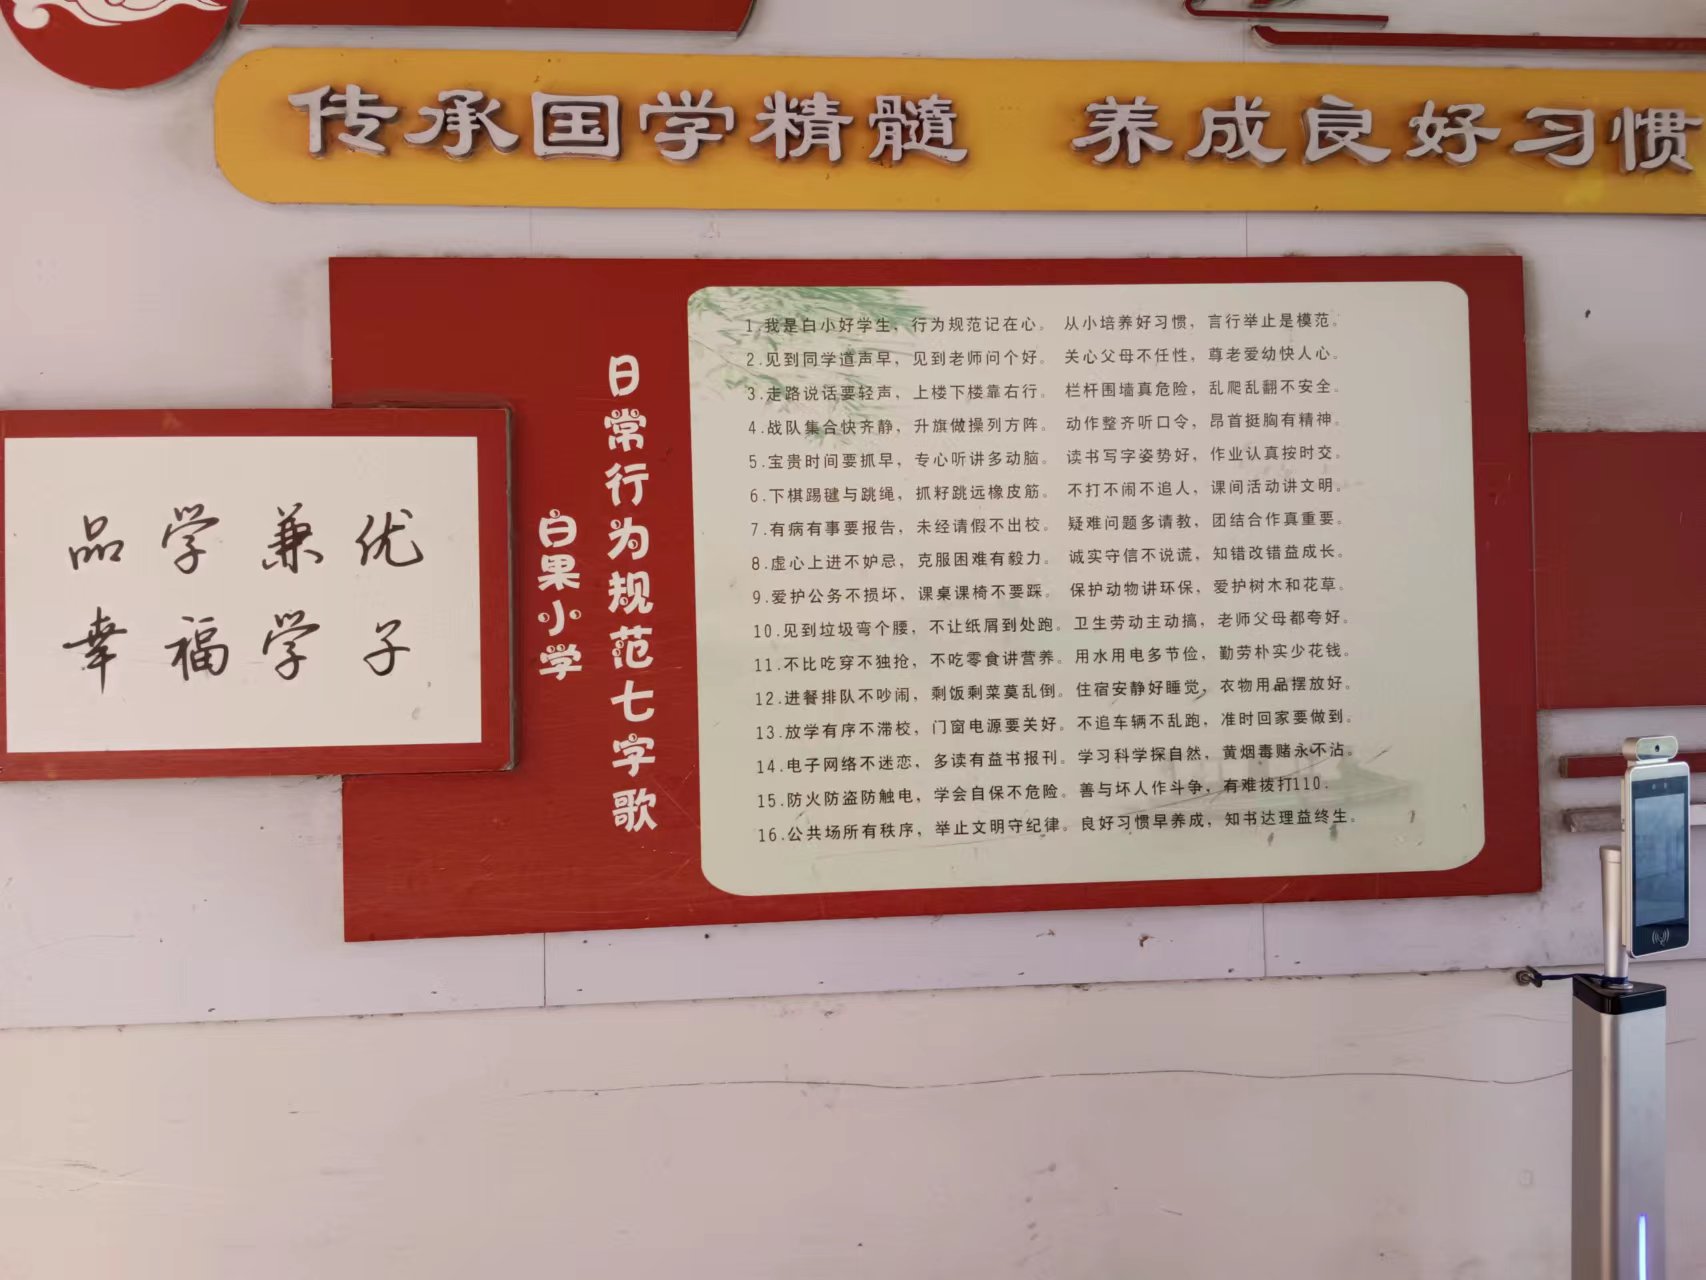 传承国学精髓 养成良好习惯
品学兼优
幸福学子
日常行为规范七字歌
白果小学
1.我是白小好学生，行为规范记在心。 从小培养好习惯，言行举止是模范。
2.见到同学道声早，见到老师问个好。 关心父母不任性，尊老爱幼快人心。
3.走路说话要轻声，上楼下楼靠右行。 栏杆围墙真危险，乱爬乱翻不安全。
4.战队集合快齐静，升旗做操列方阵。 动作整齐听口令，昂首挺胸有精神。
5.宝贵时间要抓早，专心听讲多动脑。 读书写字姿势好，作业认真按时交。
6.下棋踢毽与跳绳，抓籽跳远橡皮筋。 不打不闹不追人，课间活动讲文明。
7.有病有事要报告，未经请假不出校。 疑难问题多请教，团结合作真重要。
8.虚心上进不妒忌，克服困难有毅力。 诚实守信不说谎，知错改错益成长。
9.爱护公务不损坏，课桌课椅不要踩。 保护动物讲环保，爱护树木和花草。
10.见到垃圾弯个腰，不让纸屑到处跑。卫生劳动主动搞，老师父母都夸好。
11.不比吃穿不独抢，不吃零食讲营养。用水用电多节俭，勤劳朴实少花钱。
12.进餐排队不吵闹，剩饭剩菜莫乱倒。住宿安静好睡觉，衣物用品摆放好。
13.放学有序不滞校，门窗电源要关好。不追车辆不乱跑，准时回家要做到。
14.电子网络不迷恋，多读有益书报刊。学习科学探自然，黄烟毒赌永不沾。
15.防火防盗防触电，学会自保不危险。善与坏人作斗争，有难拨打110.
16.公共场所有秩序，举止文明守纪律。良好习惯早养成，知书达理益终生。